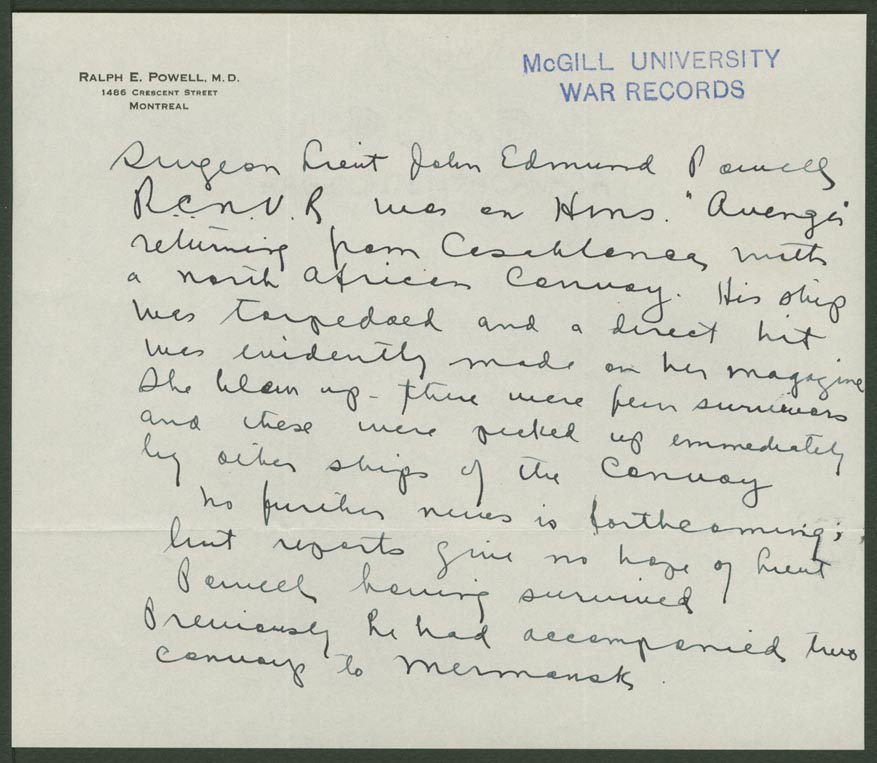 RALPH E. POWELL, M.D.
1486 CRESCENT STREET
MONTREAL
McGILL UNIVERSITY
WAR RECORDS
Surgeon Lieut John Edmund Powell
R.C.N.V.R was on Hms. "Avenger
returning from Casablanca with
a north African Convoy. His ship
was torpedoed and a direct hit
was evidently made on her magazine
She blew up - there were few survivors
and these were picked up immediately
by other ships of the Convoy
No further news is forthcoming;
but reports give no hope of Lieut
Powell having survived
Previously he had accompanied two
convoys to Mermansk.